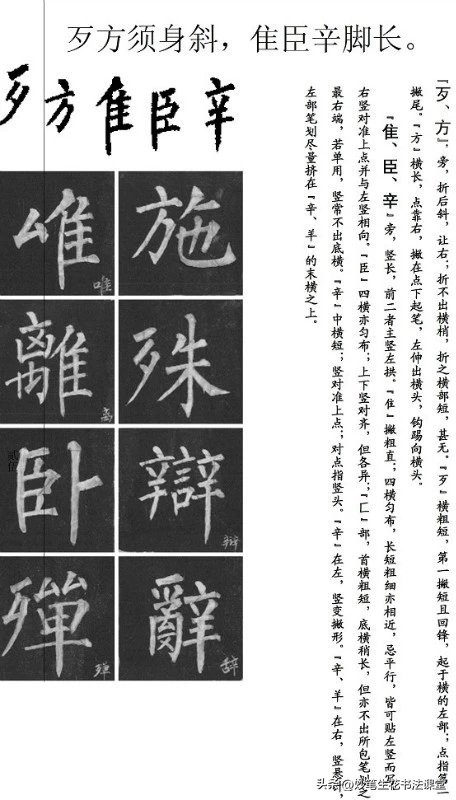 歹方须身斜，隹臣辛脚长。
歹方隹臣辛
「歹、方」，旁，折后斜，让右；折不出横梢，折之横部短，甚无。「歹」横粗短，第一撇短且回锋，起于横的左部；点指第一
撇尾。「方」横长，点靠右，撇在点下起笔，左伸出横头，钩踢向横头。
「隹、臣、辛」旁，竖长，前二者主竖左拱。「隹」撇粗直；四横匀布，长短粗细亦相近，忌平行，皆可贴左竖而写
右竖对准上点并与左竖相向。「臣」四横亦匀布；上下竖对齐，但各异；「匚」部，首横粗短，底横稍长，但亦不出所包笔划之
最右端，若单用，竖常不出底横。「辛」中横短；竖对准上点；对点指竖头。「辛」在左，竖变撇形。「辛、羊」在右，竖悬
左部笔划尽量挤在「辛、羊」的末横之上。
唯 施
離 殊
卧 辯
殫 辭
唯
离
辩
殚
辞
头条@妙笔生花书法课堂